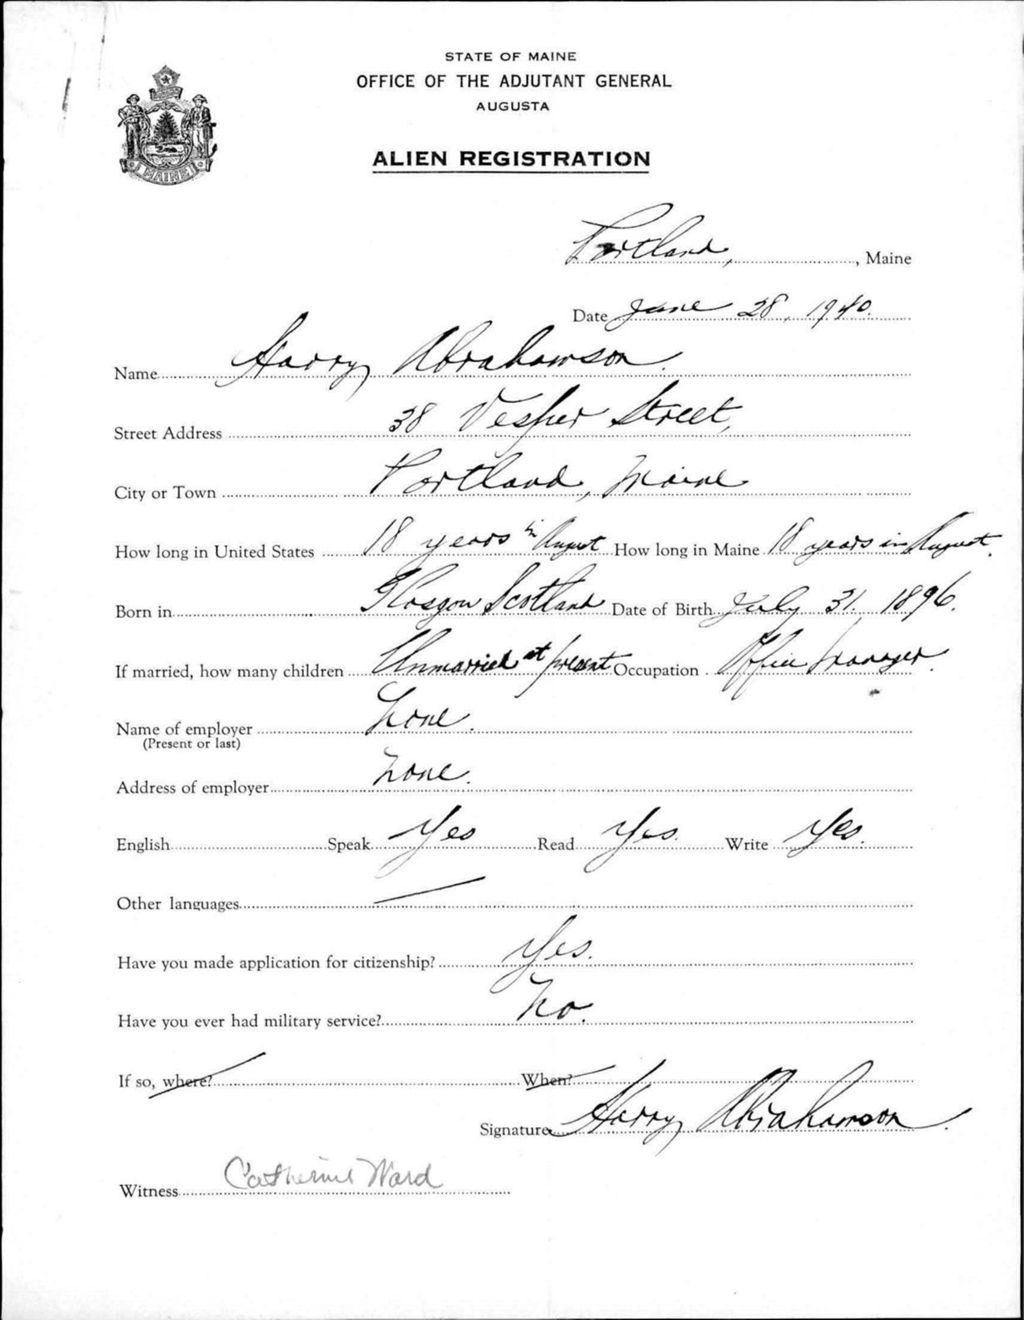 STATE OF MAINE
OFFICE OF THE ADJUTANT GENERAL
AUGUSTA
ALIEN REGISTRATION
Portland, , Maine
Date June 28, 1940.
Name Harry Abrahamson.
Street Address 38 Vesper Street,
City or Town Portland, Maine
How long in United States 18 years in August How long in Maine 18 years in August.
Born in Glasgow Scotland Date of Birth July 31, 1896.
If married, how many children Unmarried at present Occupation Office Manager.
Name of employer None.
(Present or last)
Address of employer None.
English Speak Yes Read Yes. Write Yes.
Other languages —
Have you made application for citizenship? Yes.
Have you ever had military service? No.
If so, where? When?
Signature Harry Abrahamson.
Witness Catherine Ward
MAINE